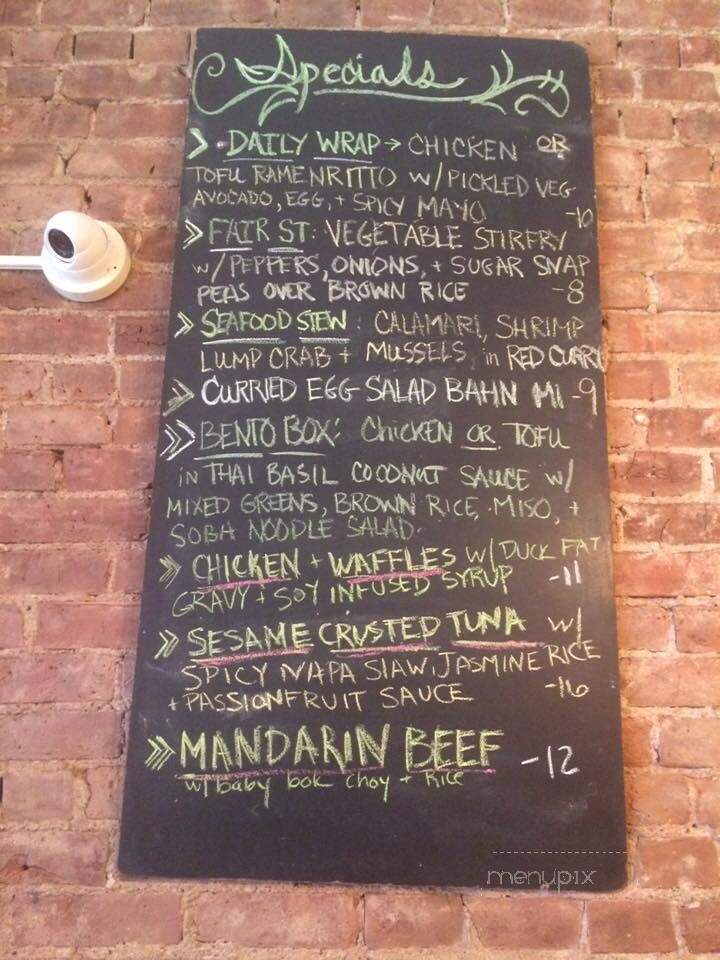 Specials
> DAILY WRAP → CHICKEN OR
TOFU RAMENRITTO W/PICKLED VEG
AVOCADO, EGG, + SPICY MAYO -10
>> FAIR ST: VEGETABLE STIRFRY
W/PEPPERS, ONIONS, + SUGAR SNAP
PEAS OVER BROWN RICE -8
>> SEAFOOD STEW: CALAMARI, SHRIMP
LUMP CRAB + MUSSELS in RED CURRY
>> CURRIED EGG SALAD BAHN MI -9
>> BENTO BOX: CHICKEN OR TOFU
IN THAI BASIL COCONUT SAUCE W/
MIXED GREENS, BROWN RICE, MISO, +
SOBA NOODLE SALAD.
>> CHICKEN + WAFFLES W/DUCK FAT
GRAVY + SOY INFUSED SYRUP -11
>> SESAME CRUSTED TUNA W/
SPICY NAPA SLAW, JASMINE RICE
+ PASSIONFRUIT SAUCE -16
>>> MANDARIN BEEF -12
w/ baby bok choy + Rice
menupix